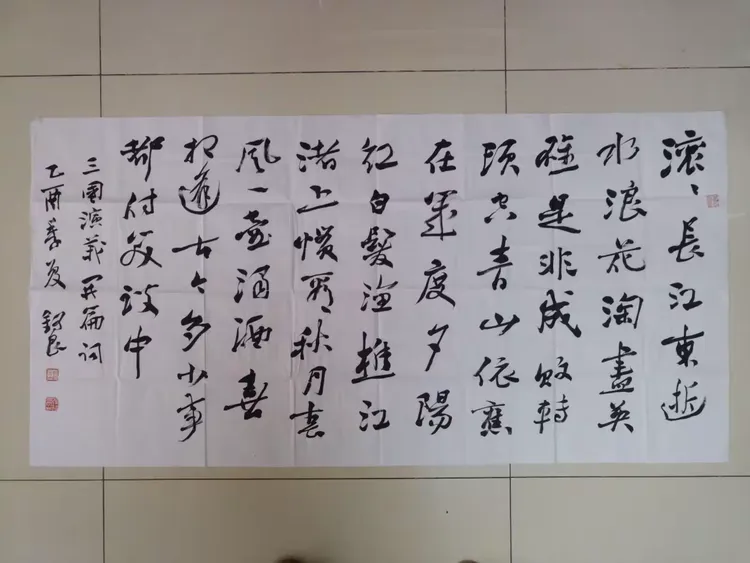 滚〻長江東逝
水浪花淘盡英
雄是非成敗轉
頭空青山依舊
在幾度夕陽
紅白髮漁樵江
渚上慣看秋月春
風一壺濁酒喜
相逢古今多少事
都付笑談中
三國演義开篇詞
乙酉季夏